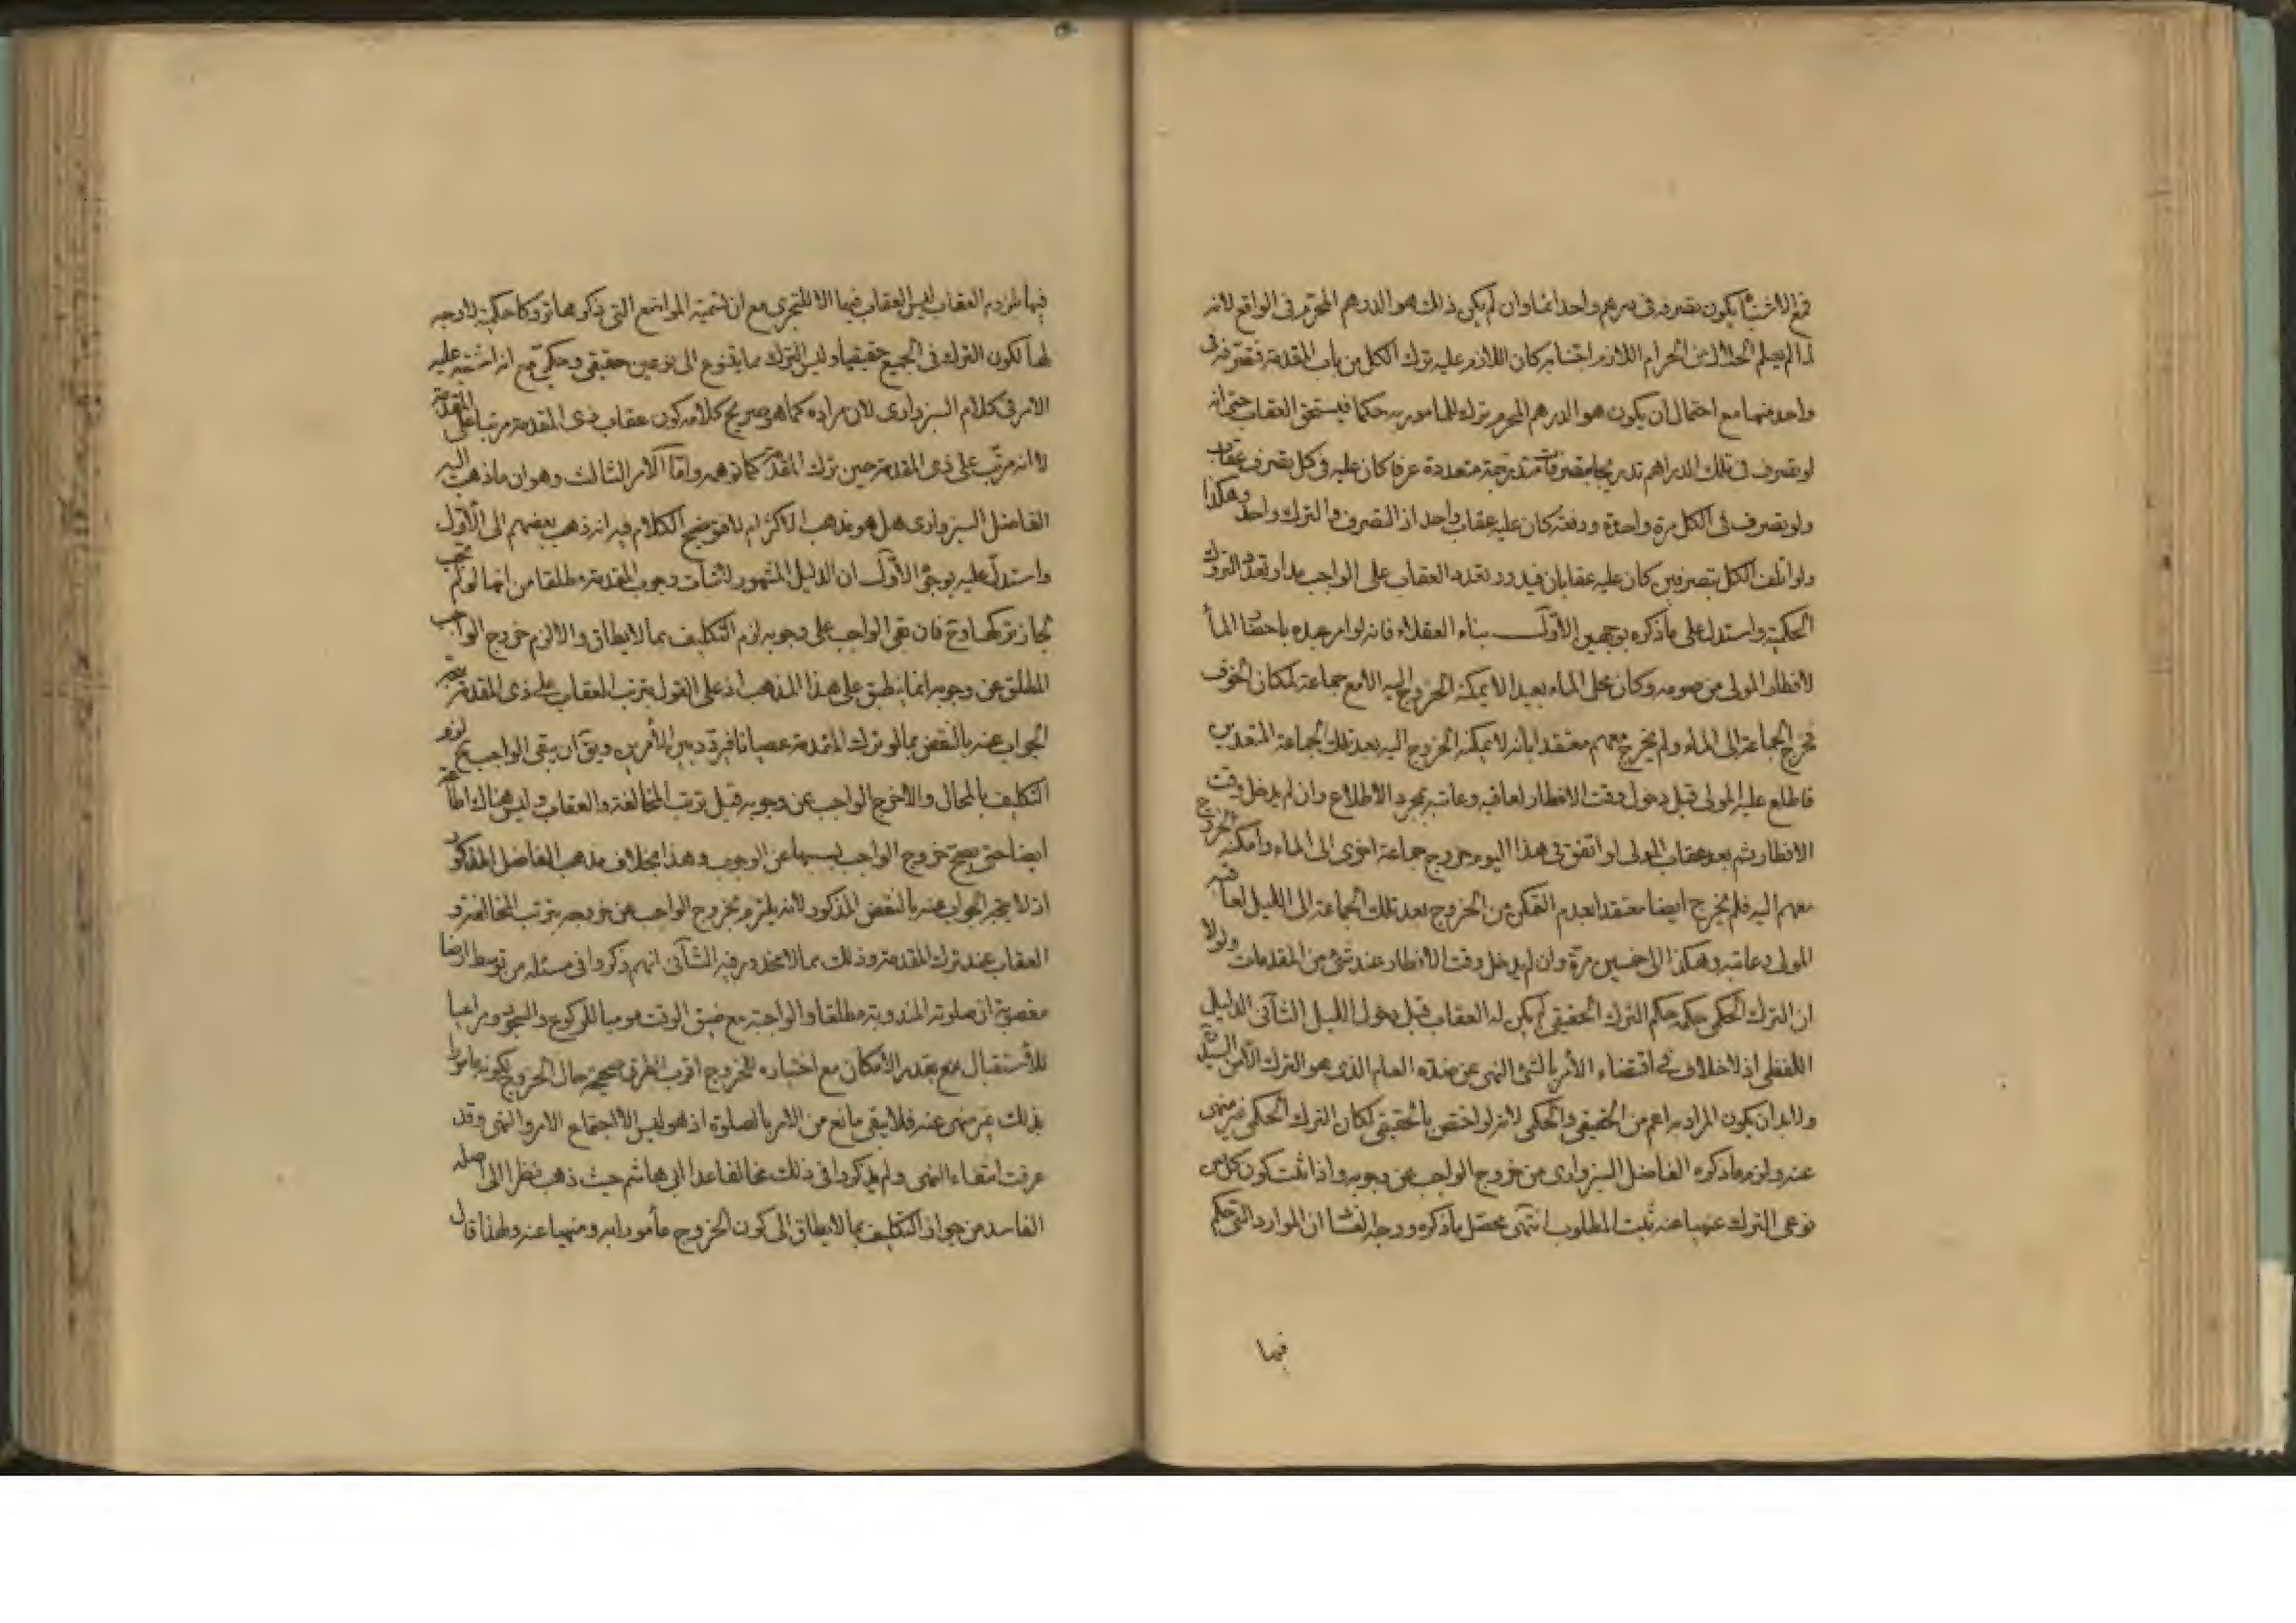 فمع الاشتباه يكون تصرفه في درهم واحد اثما وان لم يكن ذلك هو الدرهم المحرم في الواقع لانه
لما لم يعلم الحلال من الحرام اللازم اجتنابه كان اللازم عليه ترك الكل من باب المقدمة فتصرفه في
واحد منها مع احتمال ان يكون هو الدرهم المحرم ترك للمامور به حكما فيستحق العقاب حتى انه
لو تصرف في تلك الدراهم تدريجا بتصرفات متدرجة متعددة عرفا كان عليه في كل تصرف عقاب
ولو تصرف في الكل مرة واحدة ودفعة كان عليه عقاب واحد اذ التصرف والترك واحد وهكذا
ولو اتلف الكل بتصرفين كان عليه عقابان فيدور تعدد العقاب على الواجب مدار تعدد التروك
الحكمية واستدل على ما ذكره بوجهين الاول بناء العقلاء فانه لو امر عبده باحضار الماء
لافطار المولى من صومه وكان محل الماء بعيدا لا يمكنه الخروج اليه الا مع جماعة لمكان الخوف
فخرج الجماعة الى الماء ولم يخرج معهم معتقدا بانه لا يمكنه الخروج اليه بعد تلك الجماعة المتعدين
فاطلع عليه المولى قبل دخول وقت الافطار لعاقبه وعاتبه بمجرد الاطلاع وان لم يدخل وقت
الافطار ثم بعد عقاب المولى لو اتفق في هذا اليوم خروج جماعة اخرى الى الماء وامكنه الخروج
معهم اليه فلم يخرج ايضا معتقدا بعدم التمكن من الخروج بعد تلك الجماعة الى الليل لعاقبه
المولى وعاتبه وهكذا الى خمسين مرة وان لم يدخل وقت الافطار عند شئ من المقدمات ولولا
ان الترك الحكمي حكمه حكم الترك الحقيقي لم يكن له العقاب قبل دخول الليل الثاني الدليل
اللفظي اذ لا خلاف في اقتضاء الامر بالشئ النهي عن ضده العام الذي هو الترك
ولا بد ان يكون المراد به اعم من الحقيقي والحكمي لانه لو اختص بالحقيقي لكان الترك الحكمي غير منهى
عنه ولزم ما ذكره الفاضل السبزواري من خروج الواجب عن وجوبه واذا ثبت كون كل من
نوعي الترك منهيا عنه ثبت المطلوب انتهى محصل ما ذكره ووجه الفساد ان الموارد التي حكم
فيها
فيها بلزوم العقاب ليس العقاب فيها الا للتجري مع ان تسمية المواضع التي ذكرها تروكا حكمية لا وجه
لها لكون الترك في الجميع حقيقيا وليس الترك مما يتنوع الى نوعين حقيقي وحكمي مع انه اشتبه عليه
الامر في كلام السبزواري لان مراده كما هو صريح كلامه كون عقاب ذي المقدمة مرتبا على المقدمة
لا انه مرتب على ذي المقدمة حين ترك المقدمة كما توهمه واما الامر الثالث وهو ان ما ذهب اليه
الفاضل السبزواري هل هو مذهب الاكثر ام لا فتوضيح الكلام فيه انه ذهب بعضهم الى الاول
واستدل عليه بوجوه الاول ان الدليل المشهور لاثبات وجوب المقدمة مطلقا من انها لو لم تجب
لجاز تركها وح فان بقى الواجب على وجوبه لزم التكليف بما لا يطاق والا لزم خروج الواجب
المطلق عن وجوبه انما ينطبق على هذا المذهب اذ على القول بترتب العقاب على ذي المقدمة يتجه
الجواب عنه بالنقض بما لو ترك المقدمة عصيانا فيردد بين الامرين ويق ان بقى الواجب ح لزم
التكليف بالمحال والا خرج الواجب عن وجوبه قبل ترتب المخالفة والعقاب وليس هناك اطاعة
ايضا حتى يصح خروج الواجب بسببها عن الوجوب وهذا بخلاف مذهب الفاضل المذكور
اذ لا يتجه الجواب عنه بالنقض المذكور لانه يلتزم بخروج الواجب عن وجوبه بترتب المخالفة و
العقاب عند ترك المقدمة وذلك مما لا محذور فيه الثاني انهم ذكروا في مسئلة من توسط ارضا
مغصوبة ان صلوته المندوبة مطلقا والواجبة مع ضيق الوقت موميا للركوع والسجود ومراعيا
للاستقبال مع بقدر الامكان مع اختياره للخروج اقرب الطرق صحيحة حال الخروج لكونه مامورا
بذلك غير منهى عنه فلا يبقى مانع من الامر بالصلوة اذ هو ليس الا اجتماع الامر والنهى وقد
عرفت انتفاء النهى ولم يذكروا في ذلك مخالفا عدا ابي هاشم حيث ذهب نظرا الى اصله
الفاسد من جواز التكليف بما لا يطاق الى كون الخروج مأمورا به ومنهيا عنه ولهذا قال